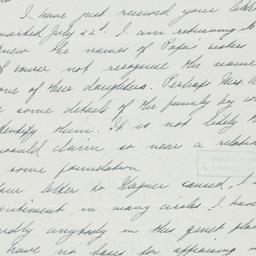 I have just received your letter
marked July 22d. I am returning to
the names of Papa's sisters
of course not recognise the name
one of their daughters. Perhaps Mrs.
some details of the family by
identify them. It is not likely th
would claim so near a relation
some foundation
letter to caused
in many circles. I have
hardly anybody in this quiet place
have no basis for